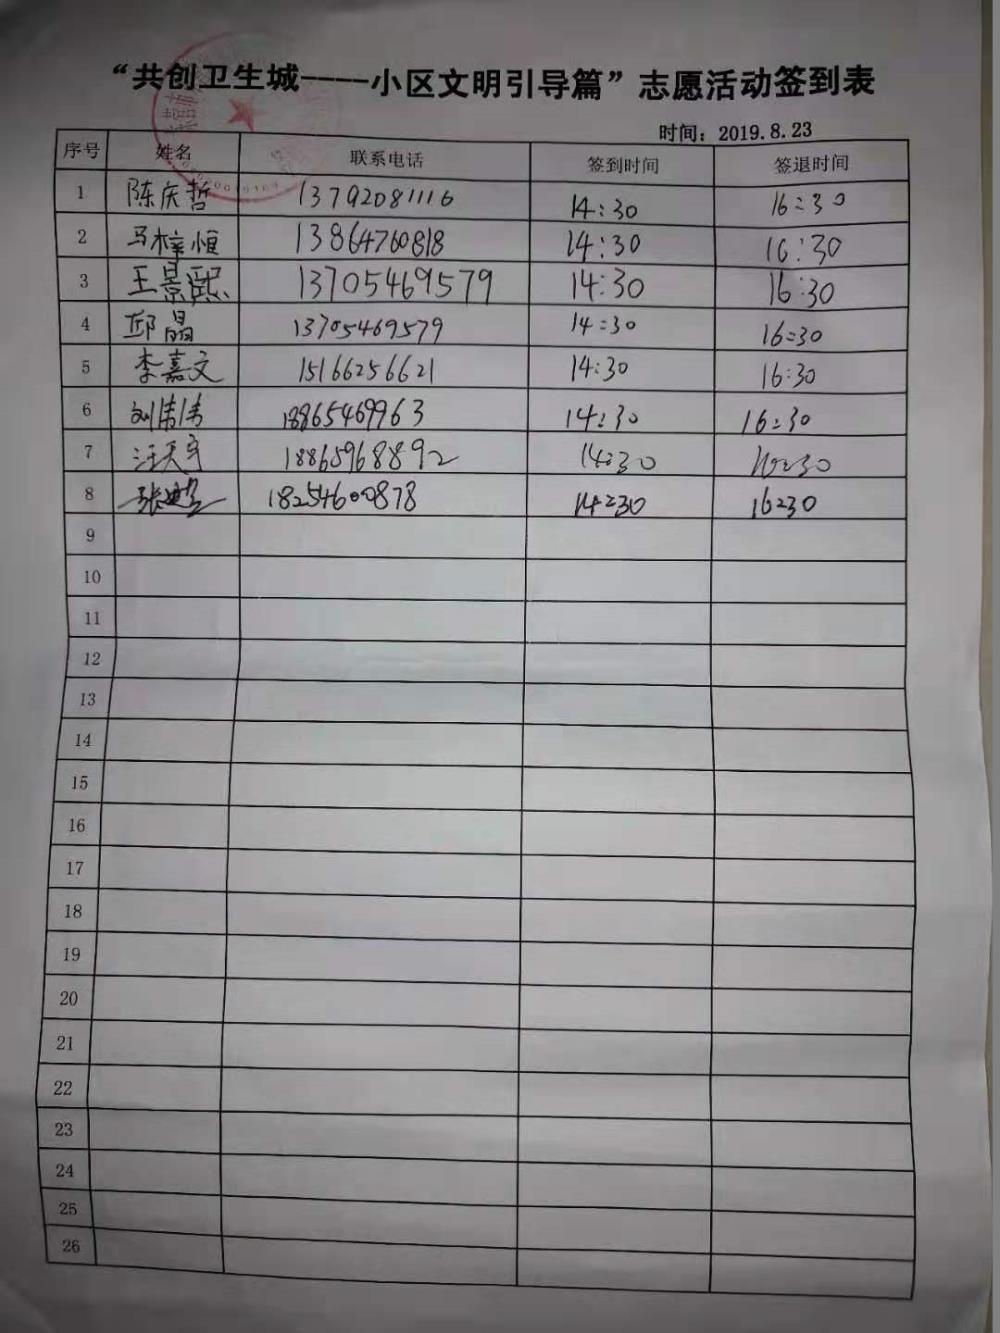 “共创卫生城----小区文明引导篇”志愿活动签到表
时间：2019.8.23
序号 姓名 联系电话 签到时间 签退时间
1 陈庆哲 13792081116 14:30 16:30
2 马梓恒 13864760818 14:30 16:30
3 王景熙 13705469579 14:30 16:30
4 邱晶 13705469579 14:30 16:30
5 李嘉文 15166256621 14:30 16:30
6 刘伟伟 18865469963 14:30 16:30
7 汪天宇 18865968892 14:30 16:30
8 张 18254600878 14:30 16:30
9
10
11
12
13
14
15
16
17
18
19
20
21
22
23
24
25
26